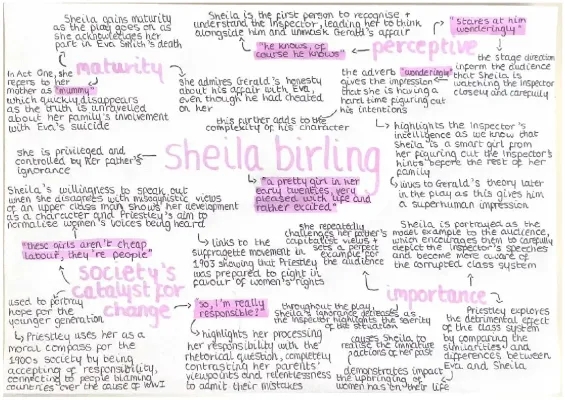 Sheila gains maturity
as the play goes on as
she acknowledges her
part in Eva Smith's death
maturity
In Act One, she
refers to her
mother as "mummy"
which quickly disappears
as the truth is unravelled
about her family's involvement
with Eva's suicide
Sheila is the first person to recognise +
understand the Inspector, leading her to think
alongside him and unmask Gerald's affair
"he knows, of
course he knows"
perceptive
"stares at him
wonderingly"
the stage direction
inform the audience
that Sheila is
watching the Inspector
closely and carefully
the adverb "wonderingly"
gives the impression
that she is having a
hard time figuring out
his intentions
she admires Gerald's honesty
about his affair with Eva,
even though he had cheated
on her
this further adds to the
complexity of his character
highlights the Inspector's
intelligence as we know that
Sheila is a smart girl from
her figuring out the Inspector's
hints before the rest of her
family
links to Gerald's theory later
in the play as this gives him
a superhuman impression
Sheila birling
she is privileged and
controlled by her father's
ignorance
"a pretty girl in her
early twenties, very
pleased with life and
rather excited."
Sheila's willingness to speak out
when she disagrees with misogynistic views
of an upper class man shows her development
as a character and Priestley's aim to
normalise women's voices being heard
"these girls aren't cheap
labour, they're people"
society's
catalyst for
change
used to portray
hope for the
younger generation
Priestley uses her as a
moral compass for the
1900s society by being
accepting of responsibility,
connecting to people blaming
countries over the cause of WWI
links to the
suffragette movement in
1903 showing that Priestley
was prepared to fight in
favour of women's rights
"so, I'm really
responsible?"
highlights her processing
her responsibility with the
rhetorical question, completely
contrasting her parents'
viewpoints and relentlessness
to admit their mistakes
she repeatedly
challenges her father's
capitalist views +
sets a perfect
example for
the audience
Sheila is portrayed as the
model example to the audience,
which encourages them to carefully
depict the Inspector's speeches
and become more aware of
the corrupted class system
importance
throughout the play,
Sheila's ignorance decreases as
the Inspector highlights the severity
of the situation
causes Sheila to
realise the immature
actions of her past
demonstrates impact
the upbringing of
women has on their life
Priestley explores
the detrimental effect
of the class system
by comparing the
similarities and
differences between
Eva and Sheila